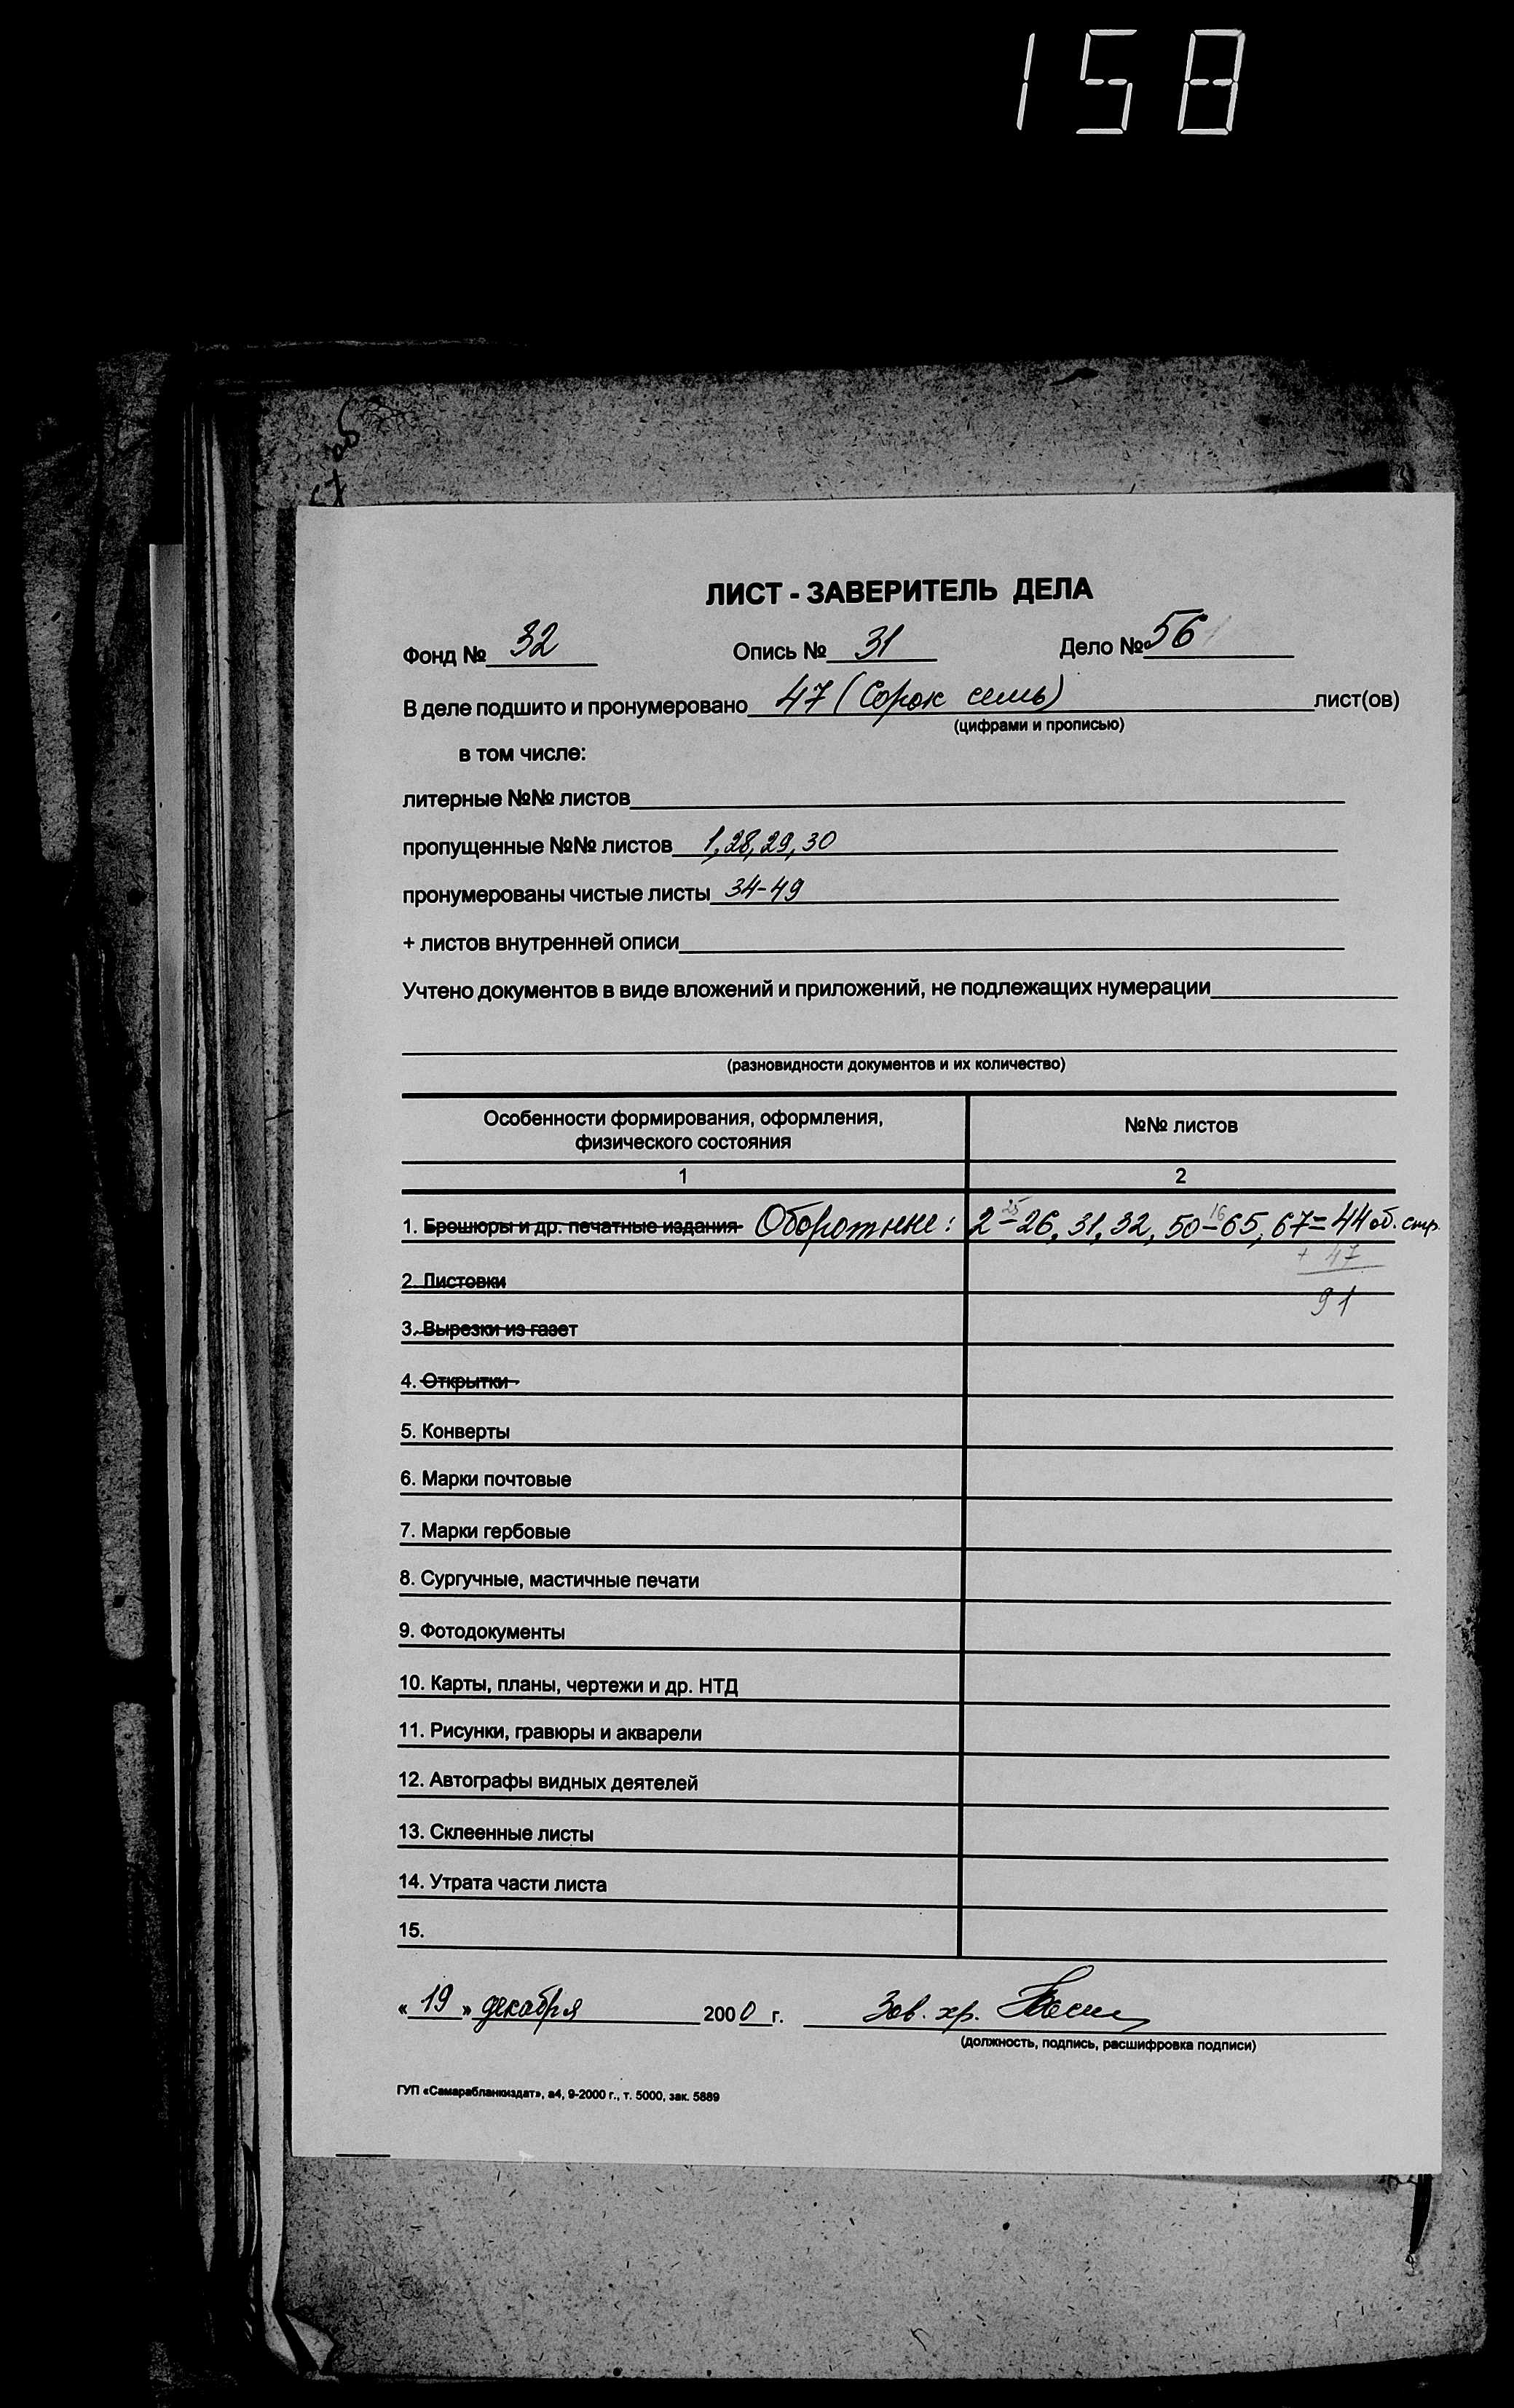 158
67 об
ЛИСТ - ЗАВЕРИТЕЛЬ ДЕЛА
Фонд № 32 Опись № 31 Дело № 56
В деле подшито и пронумеровано 47 (Сорок семь) лист(ов)
(цифрами и прописью)
в том числе:
литерные №№ листов
пропущенные №№ листов 1, 28, 29, 30
пронумерованы чистые листы 34-49
+ листов внутренней описи
Учтено документов в виде вложений и приложений, не подлежащих нумерации
(разновидности документов и их количество)
Особенности формирования, оформления, физического состояния №№ листов
1 2
25 16
1. Брошюры и др. печатные издания Оборотные: 2-26, 31, 32, 50-65, 67=44 об. стр.
+ 47
2. Листовки
91
3. Вырезки из газет
4. Открытки
5. Конверты
6. Марки почтовые
7. Марки гербовые
8. Сургучные, мастичные печати
9. Фотодокументы
10. Карты, планы, чертежи и др. НТД
11. Рисунки, гравюры и акварели
12. Автографы видных деятелей
13. Склеенные листы
14. Утрата части листа
15.
« 19 » декабря 2000 г. Зав. хр.
(должность, подпись, расшифровка подписи)
ГУП «Самарабланкиздат», а4, 9-2000 г., т. 5000, зак. 5889